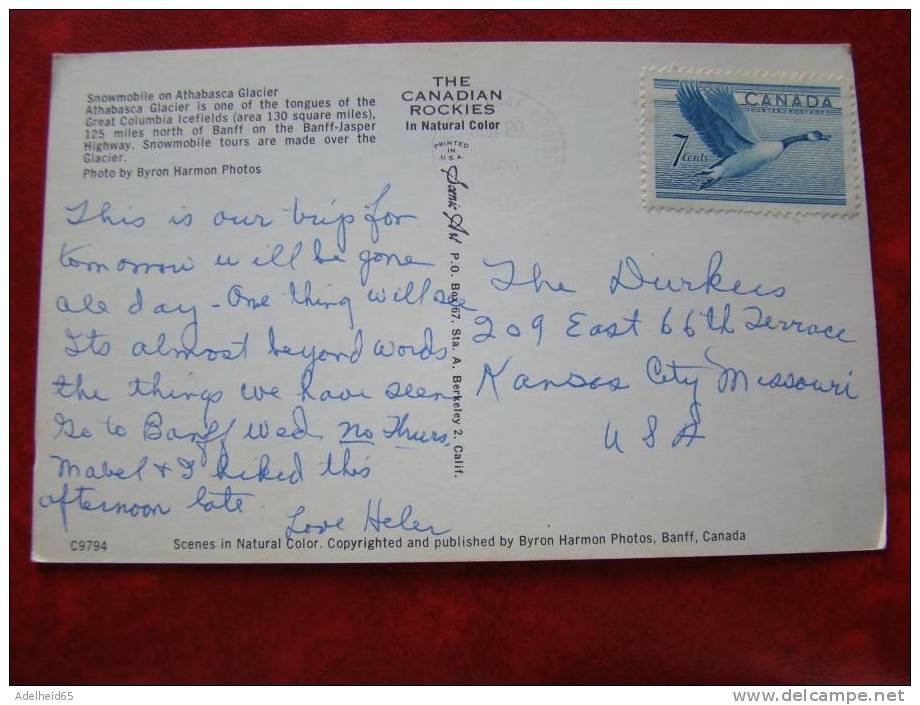 Snowmobile on Athabasca Glacier
Athabasca Glacier is one of the tongues of the
Great Columbia Icefields (area 130 square miles),
125 miles north of Banff on the Banff-Jasper
Highway. Snowmobile tours are made over the
Glacier.
Photo by Byron Harmon Photos
THE
CANADIAN
ROCKIES
In Natural Color
PRINTED
IN
U.S.A.
Scenic Art P.O. Box 67, Sta. A. Berkeley 2, Calif.
CANADA
POSTES POSTAGE
7 cents
This is our trip for
tomorrow will be gone
all day - One thing will see
Its almost beyond words
the things we have seen
Go to Banff Wed. no Thurs,
Mabel & I hiked this
afternoon late
Love Helen
The Durkees
209 East 66th Terrace
Kansas City Missouri
USA
C9794
Scenes in Natural Color. Copyrighted and published by Byron Harmon Photos, Banff, Canada
Adelheid65
www.delcampe.net